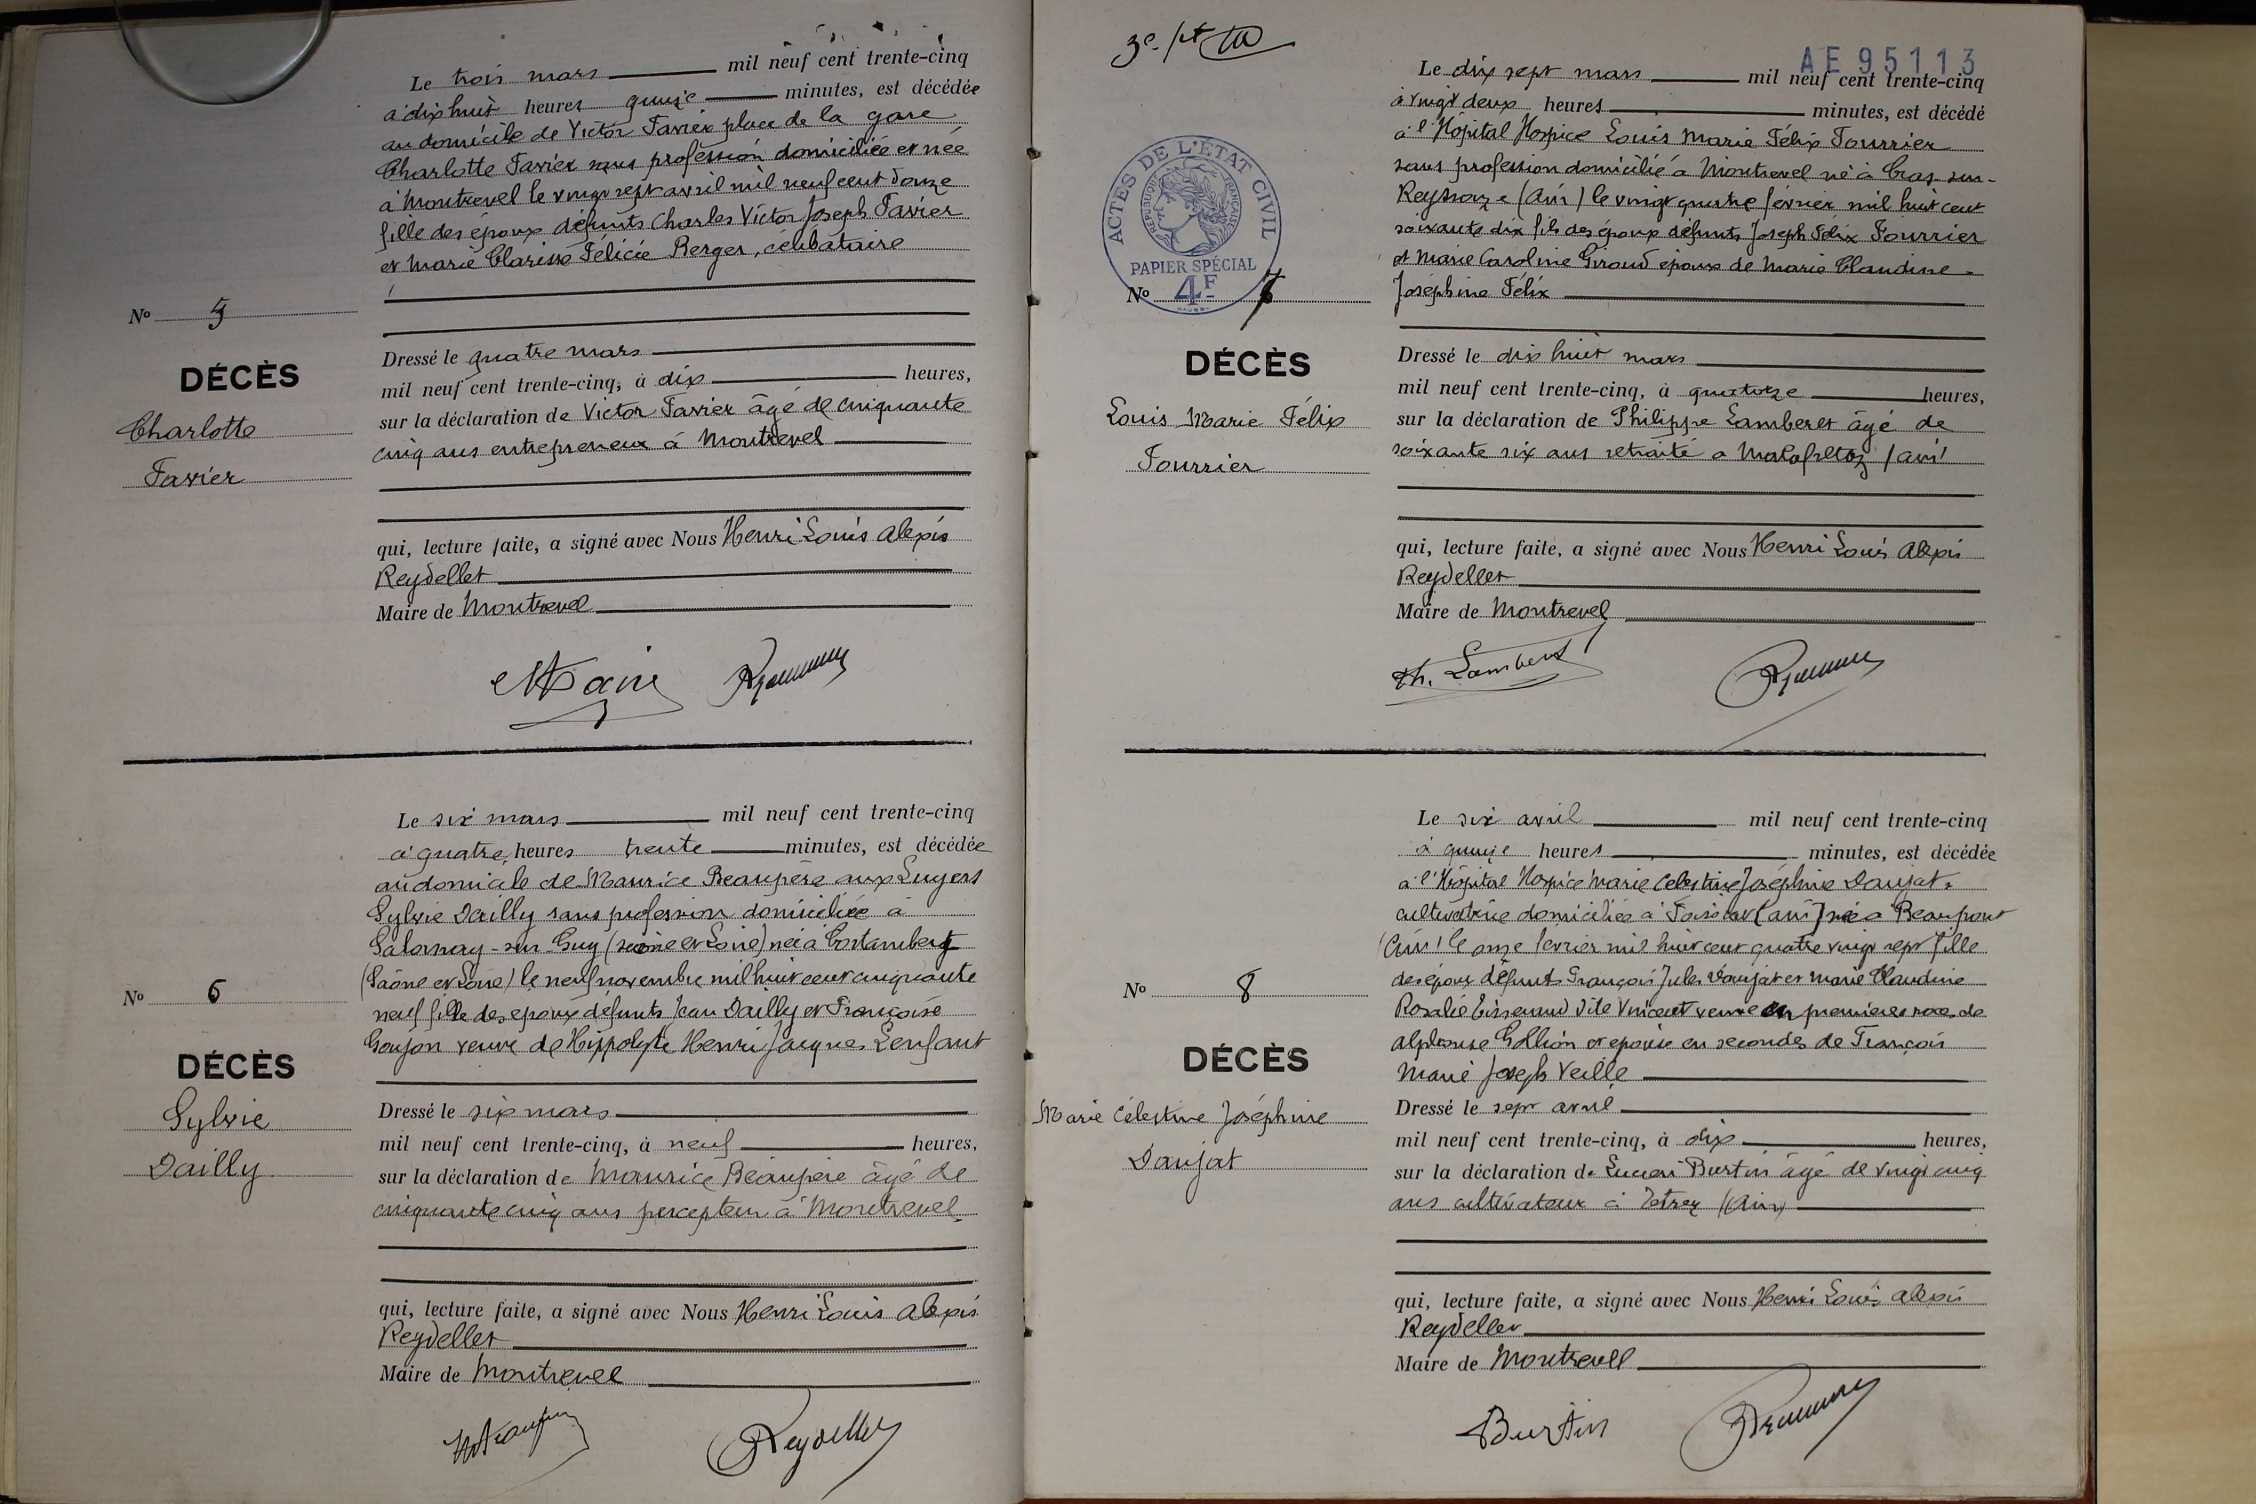 Le trois mars mil neuf cent trente-cinq
à dix huit heures quinze minutes, est décédée
au domicile de Victor Favier place de la gare
Charlotte Favier sans profession domiciliée et née
à Montrevel le vingt sept avril mil neuf cent douze
fille des époux défunts Charles Victor Joseph Favier
et Marie Clarisse Félicie Berger, célibataire
No 5
DÉCÈS
Charlotte
Favier
Dressé le quatre mars
mil neuf cent trente-cinq, à dix heures,
sur la déclaration de Victor Favier âgé de cinquante
cinq ans entrepreneur à Montrevel
qui, lecture faite, a signé avec Nous Henri Louis Alexis
Reydellet
Maire de Montrevel
Le six mars mil neuf cent trente-cinq
à quatre heures trente minutes, est décédée
au domicile de Maurice Beaupère aux Luyers
Sylvie Dailly sans profession domiciliée à
Salornay-sur-Guy (Saône et Loire) née à Cortambert
(Saône et Loire) le neuf novembre mil huit cent cinquante
neuf fille des époux défunts Jean Dailly et Françoise
Goujon veuve de Hippolyte Henri Jacques Lenfant
No 6
DÉCÈS
Sylvie
Dailly
Dressé le six mars
mil neuf cent trente-cinq, à neuf heures,
sur la déclaration de Maurice Beaupère âgé de
cinquante cinq ans percepteur à Montrevel
qui, lecture faite, a signé avec Nous Henri Louis Alexis
Reydellet
Maire de Montrevel
Reydellet
3e
AE 95113
ACTES DE L'ETAT CIVIL
REPUBLIQUE FRANÇAISE
PAPIER SPÉCIAL
4F
Le dix sept mars mil neuf cent trente-cinq
à vingt deux heures minutes, est décédé
à l'Hôpital Hospice Louis Marie Félix Fourrier
sans profession domicilié à Montrevel né à Cras-sur-
Reyssouze (Ain) le vingt quatre février mil huit cent
soixante dix fils des époux défunts Joseph Félix Fourrier
et Marie Caroline Giroud époux de Marie Claudine
Joséphine Félix
No 7
DÉCÈS
Louis Marie Félix
Fourrier
Dressé le dix huit mars
mil neuf cent trente-cinq, à quatorze heures,
sur la déclaration de Philippe Lamberet âgé de
soixante six ans retraité à Malafretaz (Ain)
qui, lecture faite, a signé avec Nous Henri Louis Alexis
Reydellet
Maire de Montrevel
Ph. Lamberet
Le six avril mil neuf cent trente-cinq
à quinze heures minutes, est décédée
à l'Hôpital Hospice Marie Célestine Joséphine Daujat
cultivatrice domiciliée à Foissiat (Ain) née à Beaupont
(Ain) le onze février mil huit cent quatre vingt sept fille
des époux défunts François Jules Daujat et Marie Claudine
Rosalie Tisserand dite Vincent veuve en premières noces de
Alphonse Gollion et épouse en secondes de François
Marie Joseph Veille
No 8
DÉCÈS
Marie Célestine Joséphine
Daujat
Dressé le sept avril
mil neuf cent trente-cinq, à dix heures,
sur la déclaration de Lucien Burtin âgé de vingt cinq
ans cultivateur à (Ain)
qui, lecture faite, a signé avec Nous Henri Louis Alexis
Reydellet
Maire de Montrevel
Burtin